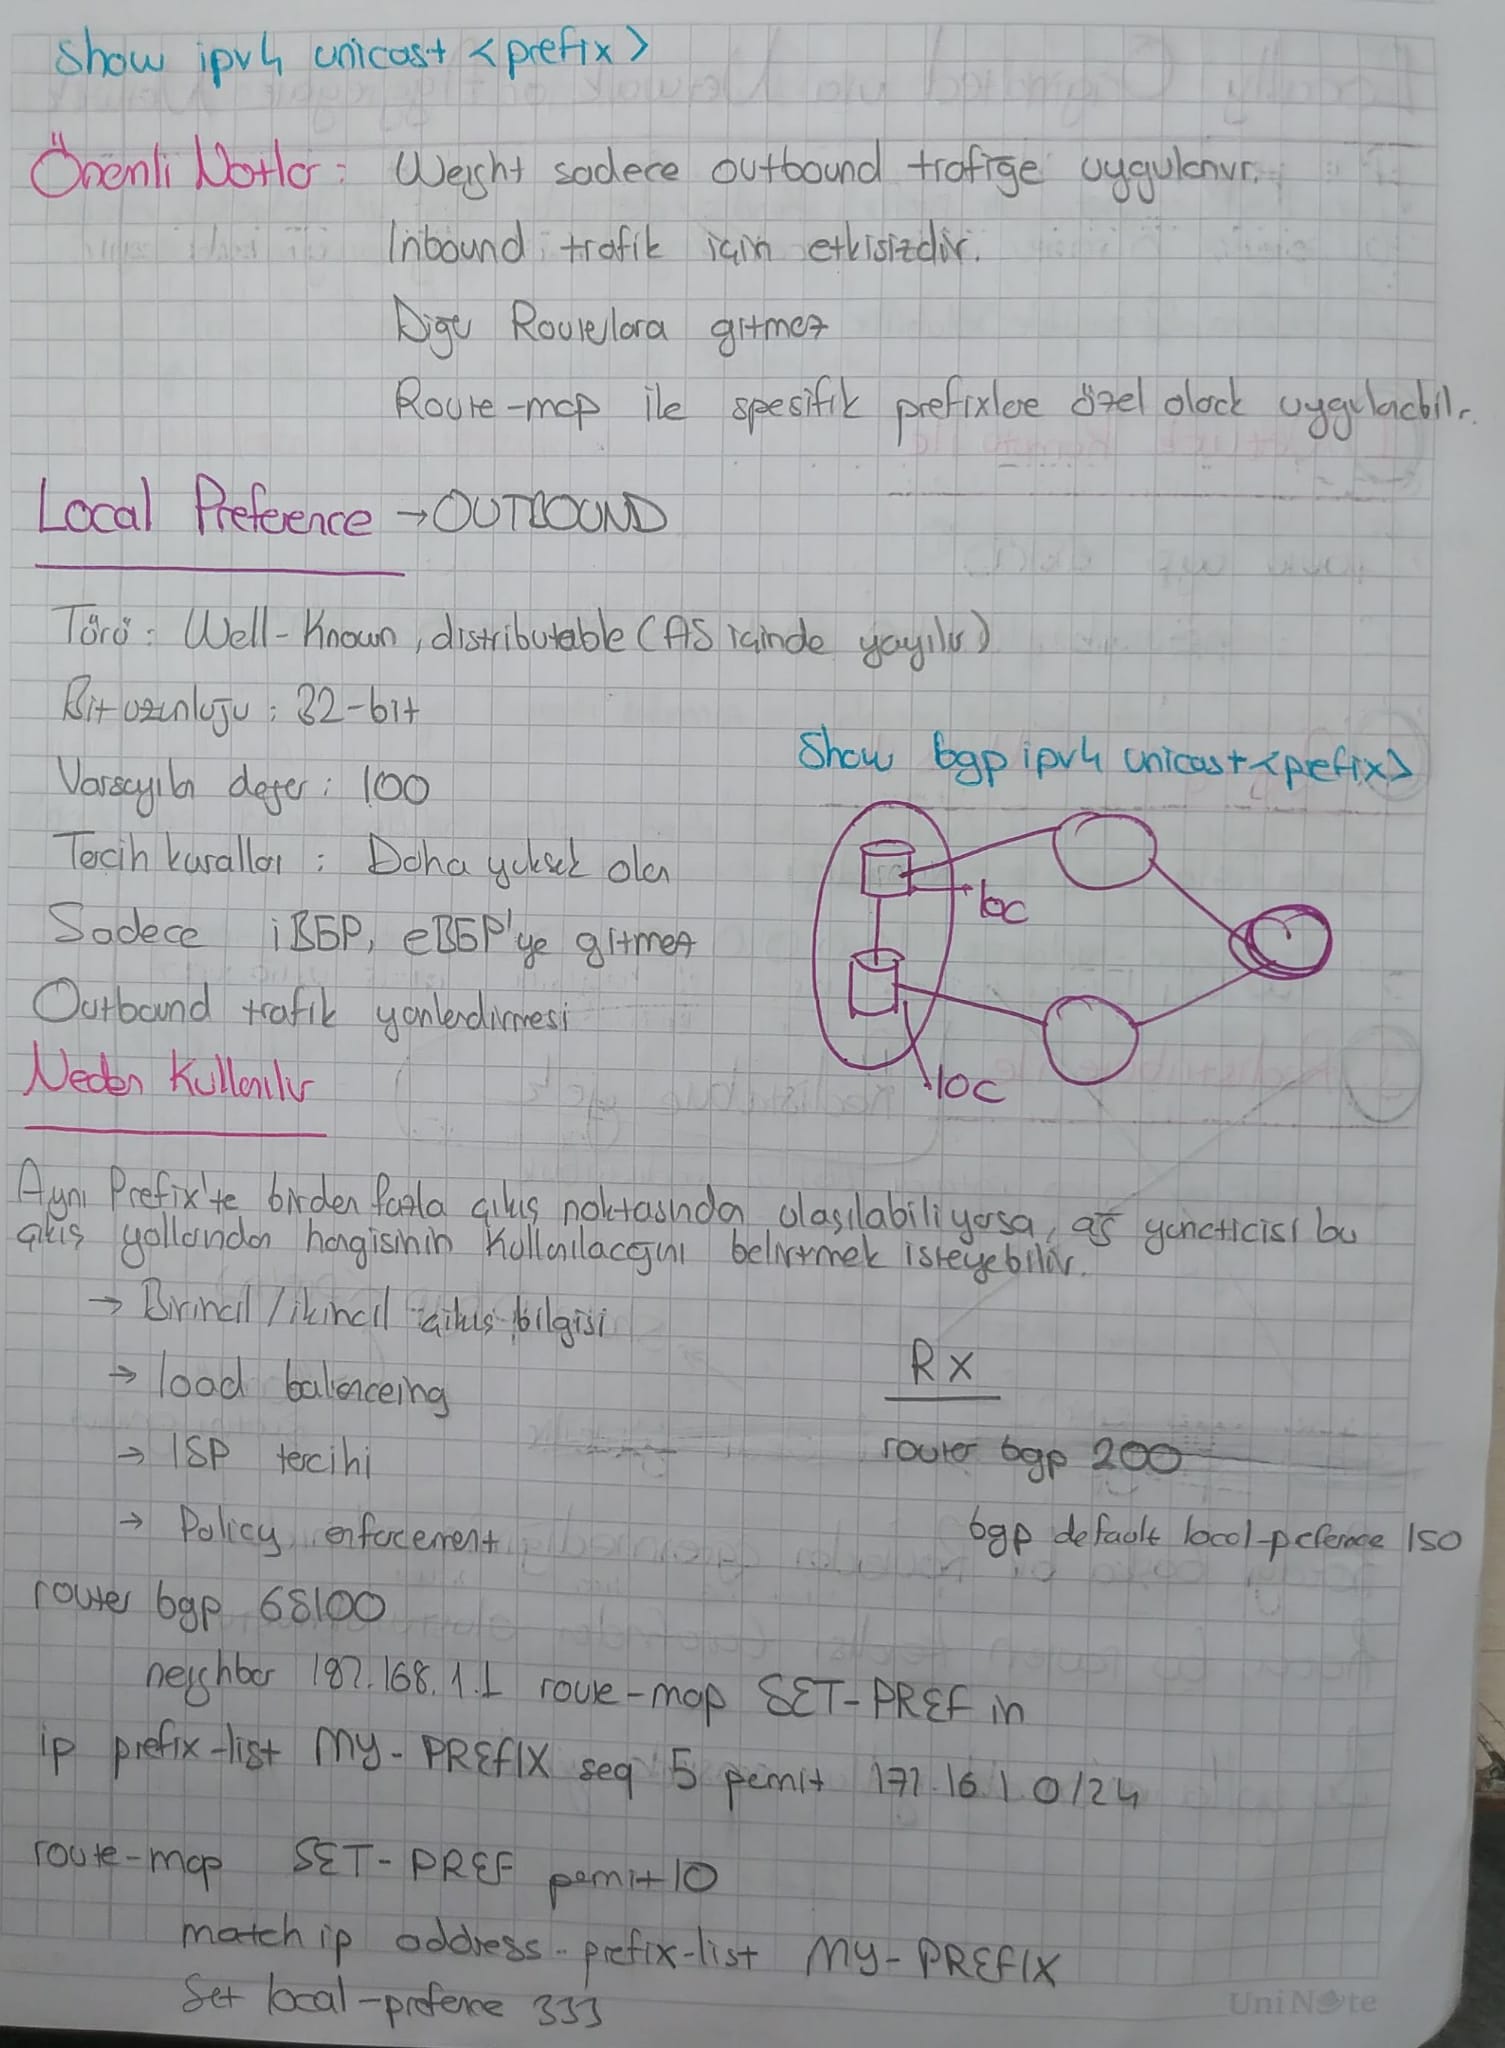 Show ipv4 unicast <prefix>
Önemli Notlar: Weight sadece outbound trafiğe uygulanır.
Inbound trafik için etkisizdir.
Diğer Routerlara gitmez
Route-map ile spesifik prefixlere özel olarak uygulanabilir.
Local Preference → OUTBOUND
Türü: Well-Known, distributable (AS içinde yayılır)
Bit uzunluğu: 32-bit
Show bgp ipv4 unicast <prefix>
Varsayılan değer: 100
Tercih kuralları: Daha yüksek olan
loc
Sadece iBGP, eBGP'ye gitmez
Outbound trafik yönlendirmesi
loc
Neden Kullanılır
Aynı Prefix'te birden fazla çıkış noktasından ulaşılabiliyorsa, ağ yöneticisi bu
çıkış yollarından hangisinin kullanılacağını belirtmek isteyebilir.
→ Birincil/ikincil çıkış bilgisi
Rx
→ load balenceing
→ ISP tercihi
router bgp 200
→ Policy enforcement
bgp default local-preference 150
router bgp 65100
neighbor 192.168.1.1 route-map SET-PREF in
ip prefix-list MY-PREFIX seq 5 permit 172.16.1.0/24
route-map SET-PREF permit 10
match ip address prefix-list MY-PREFIX
Set local-prefence 333
UniNote